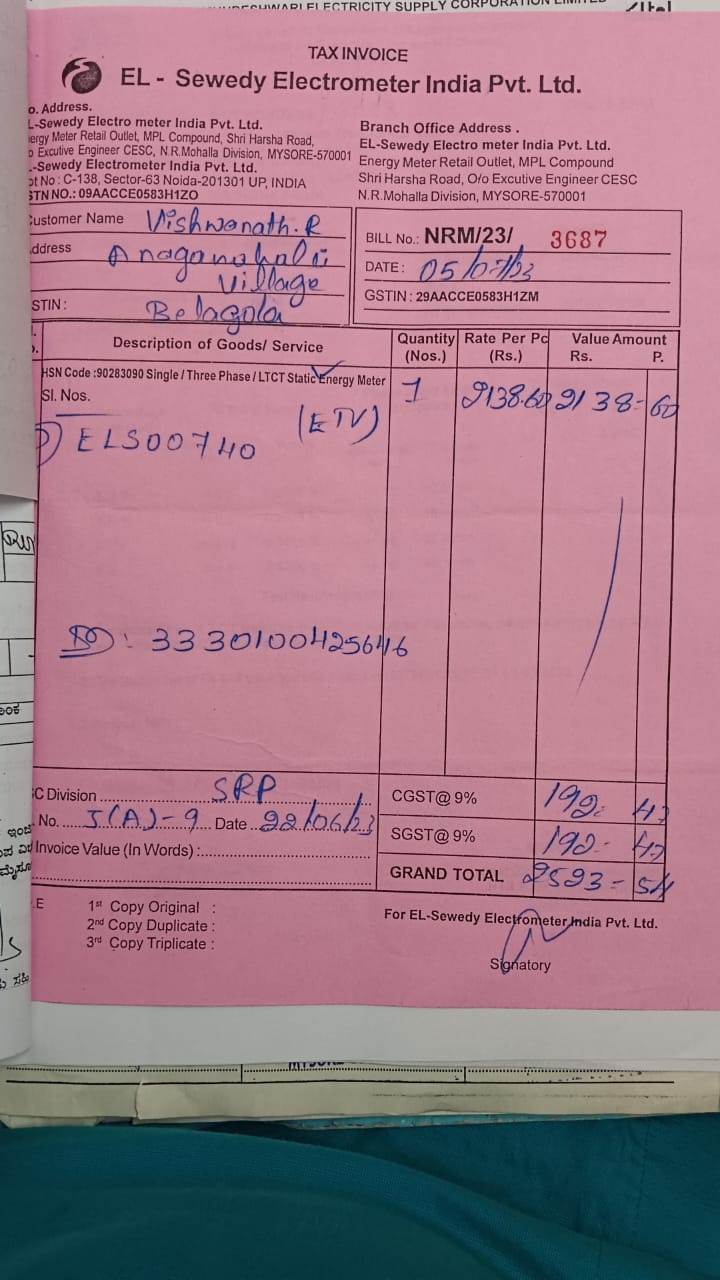 ESHWARI ELECTRICITY SUPPLY CORPORATION LIMITED
TAX INVOICE
EL - Sewedy Electrometer India Pvt. Ltd.
o. Address.
L-Sewedy Electro meter India Pvt. Ltd.
ergy Meter Retail Outlet, MPL Compound, Shri Harsha Road,
o Excutive Engineer CESC, N.R.Mohalla Division, MYSORE-570001
-Sewedy Electrometer India Pvt. Ltd.
ot No : C-138, Sector-63 Noida-201301 UP, INDIA
STN NO.: 09AACCE0583H1ZO
Branch Office Address .
EL-Sewedy Electro meter India Pvt. Ltd.
Energy Meter Retail Outlet, MPL Compound
Shri Harsha Road, O/o Excutive Engineer CESC
N.R.Mohalla Division, MYSORE-570001
ustomer Name Vishwanath.R
ddress Anaganahalli
Village
STIN : Belagola
BILL No.: NRM/23/ 3687
DATE : 05/07/23
GSTIN : 29AACCE0583H1ZM
Description of Goods/ Service
Quantity (Nos.)
Rate Per Pc (Rs.)
Value Amount
Rs. P.
HSN Code :90283090 Single / Three Phase / LTCT Static Energy Meter
Sl. Nos.
1 2138.60 2138-60
(ETV)
ELS00740
: 3330100425646
C Division SRP
No. J(A)-9 Date 22/06/23
Invoice Value (In Words) :
CGST@ 9% 192. 47
SGST@ 9% 192.- 47
GRAND TOTAL 2523-54
.E
1st Copy Original :
2nd Copy Duplicate :
3rd Copy Triplicate :
For EL-Sewedy Electrometer India Pvt. Ltd.
Signatory